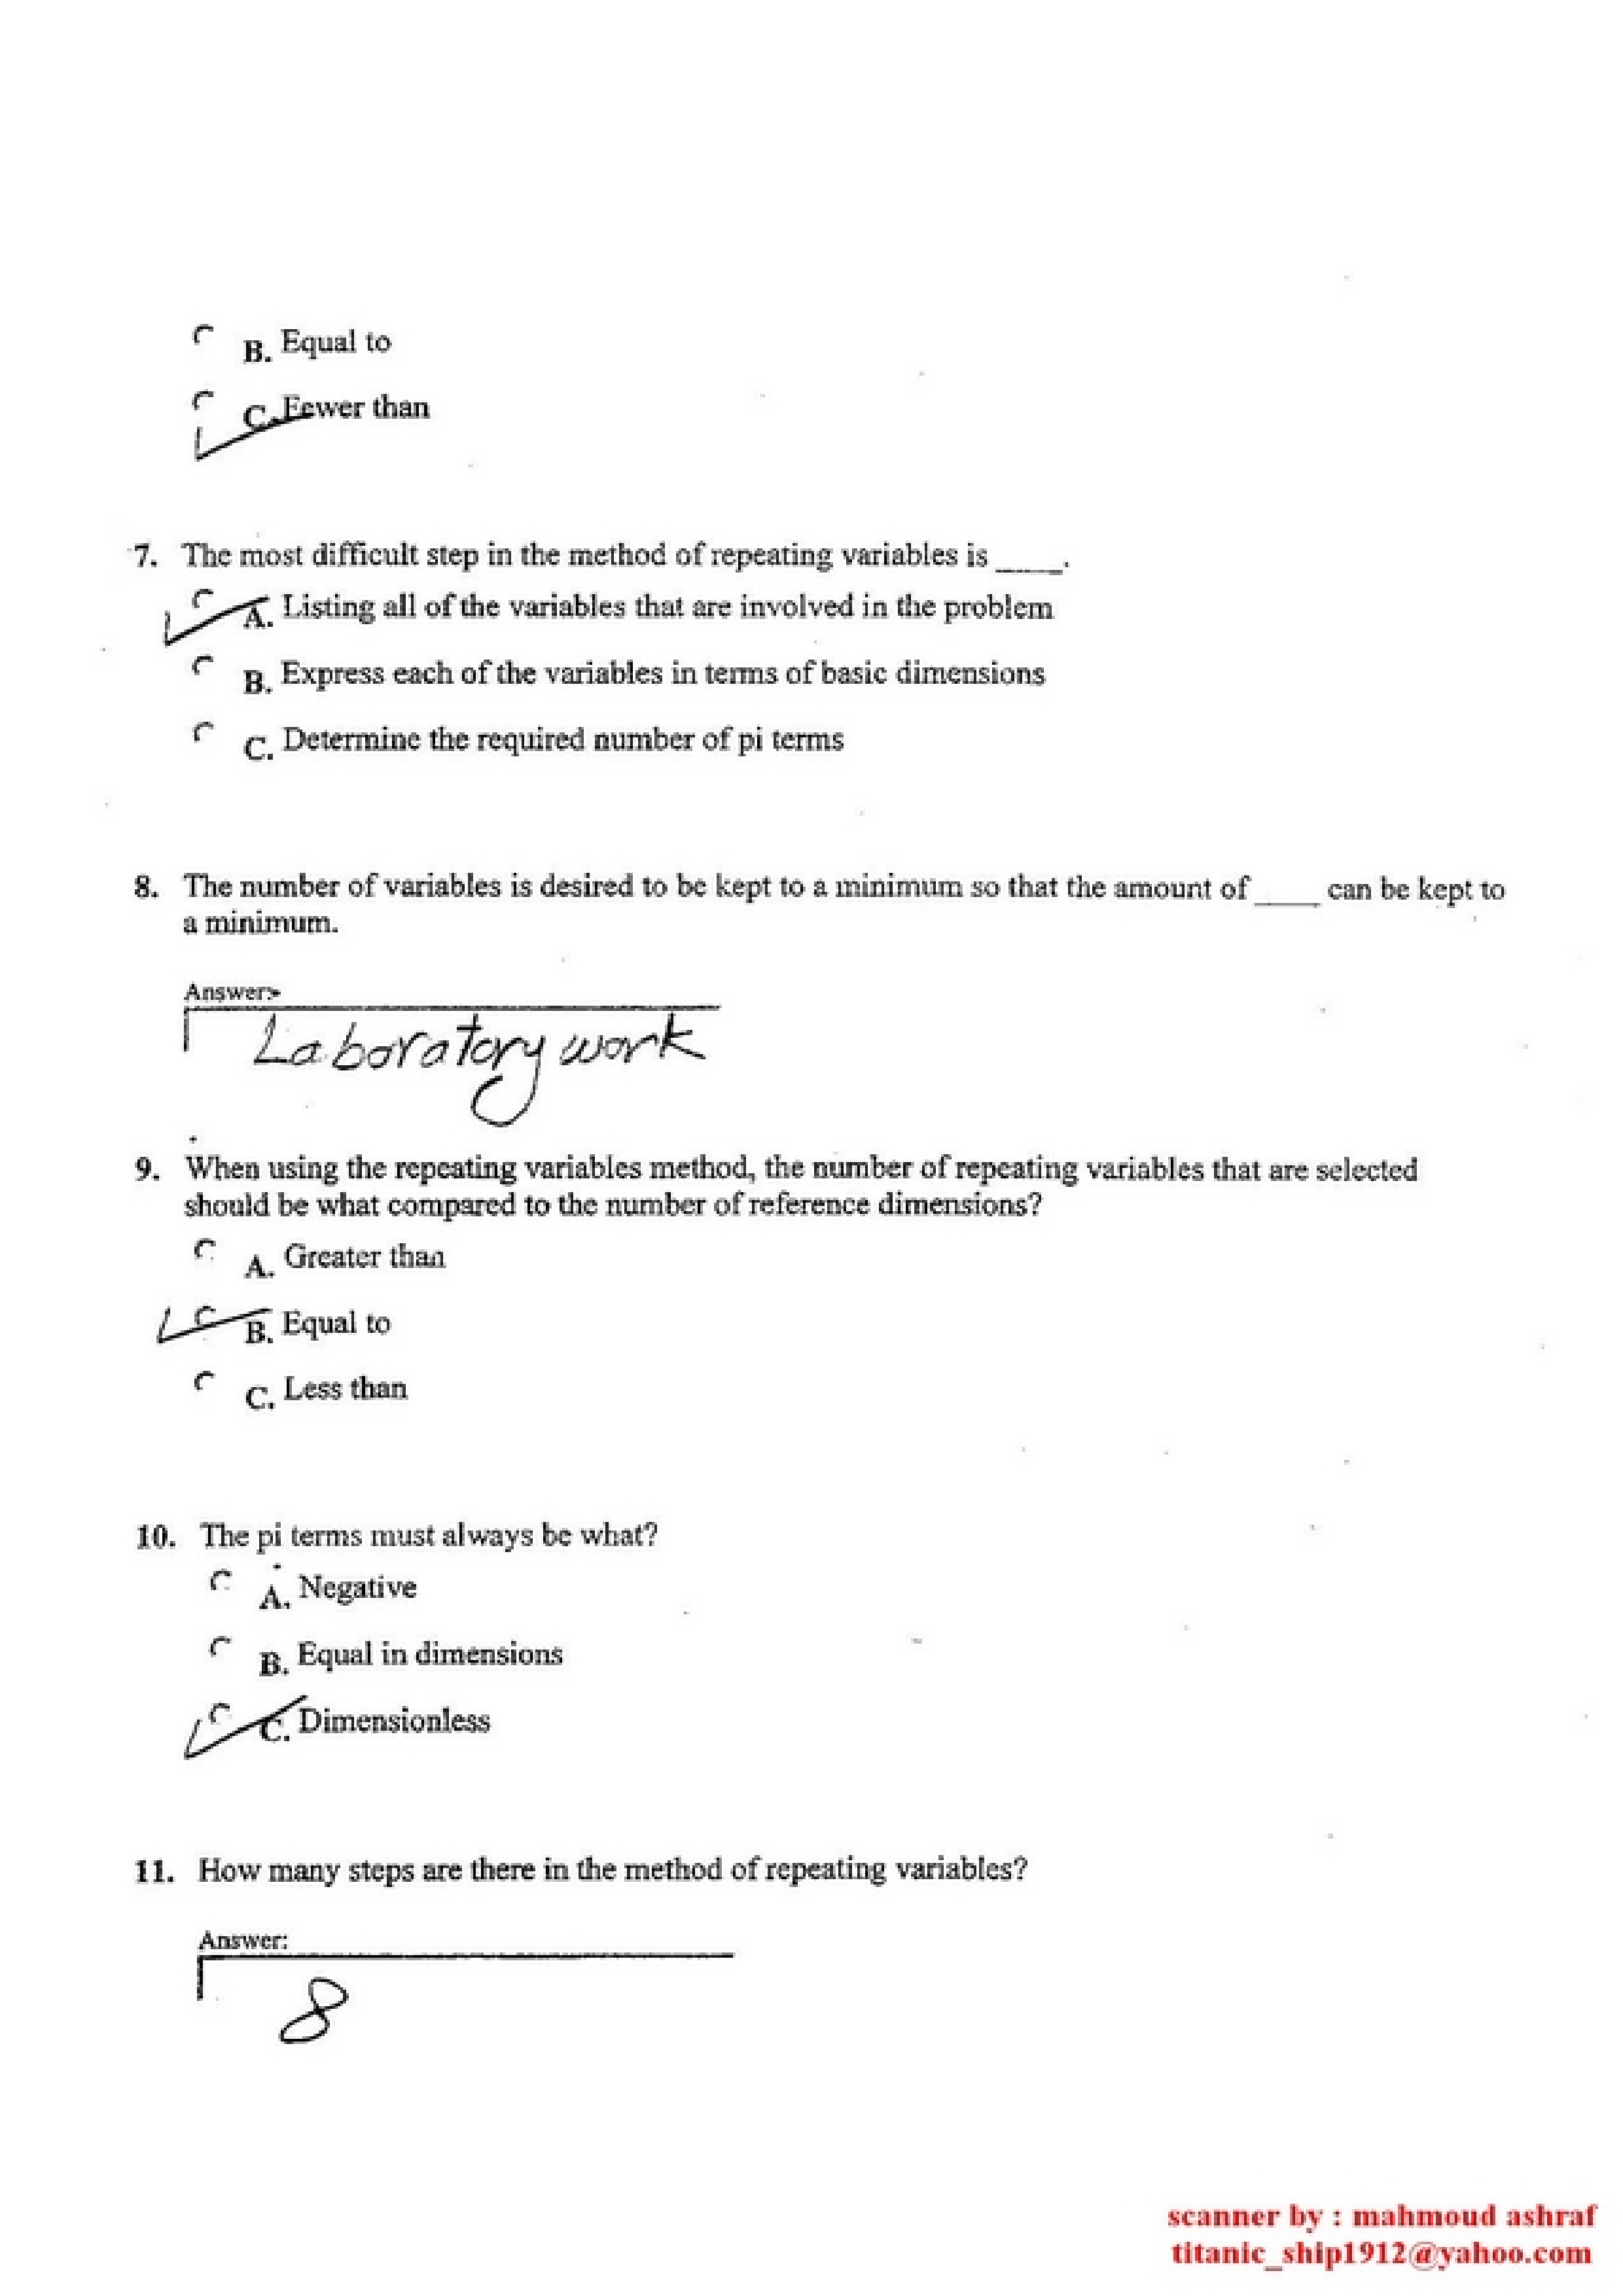 B. Equal to
C. Fewer than
7. The most difficult step in the method of repeating variables is _____.
A. Listing all of the variables that are involved in the problem
B. Express each of the variables in terms of basic dimensions
C. Determine the required number of pi terms
8. The number of variables is desired to be kept to a minimum so that the amount of _____ can be kept to
a minimum.
Answer:
Laboratory work
9. When using the repeating variables method, the number of repeating variables that are selected
should be what compared to the number of reference dimensions?
A. Greater than
B. Equal to
C. Less than
10. The pi terms must always be what?
A. Negative
B. Equal in dimensions
C. Dimensionless
11. How many steps are there in the method of repeating variables?
Answer:
8
scanner by : mahmoud ashraf
titanic_ship1912@yahoo.com